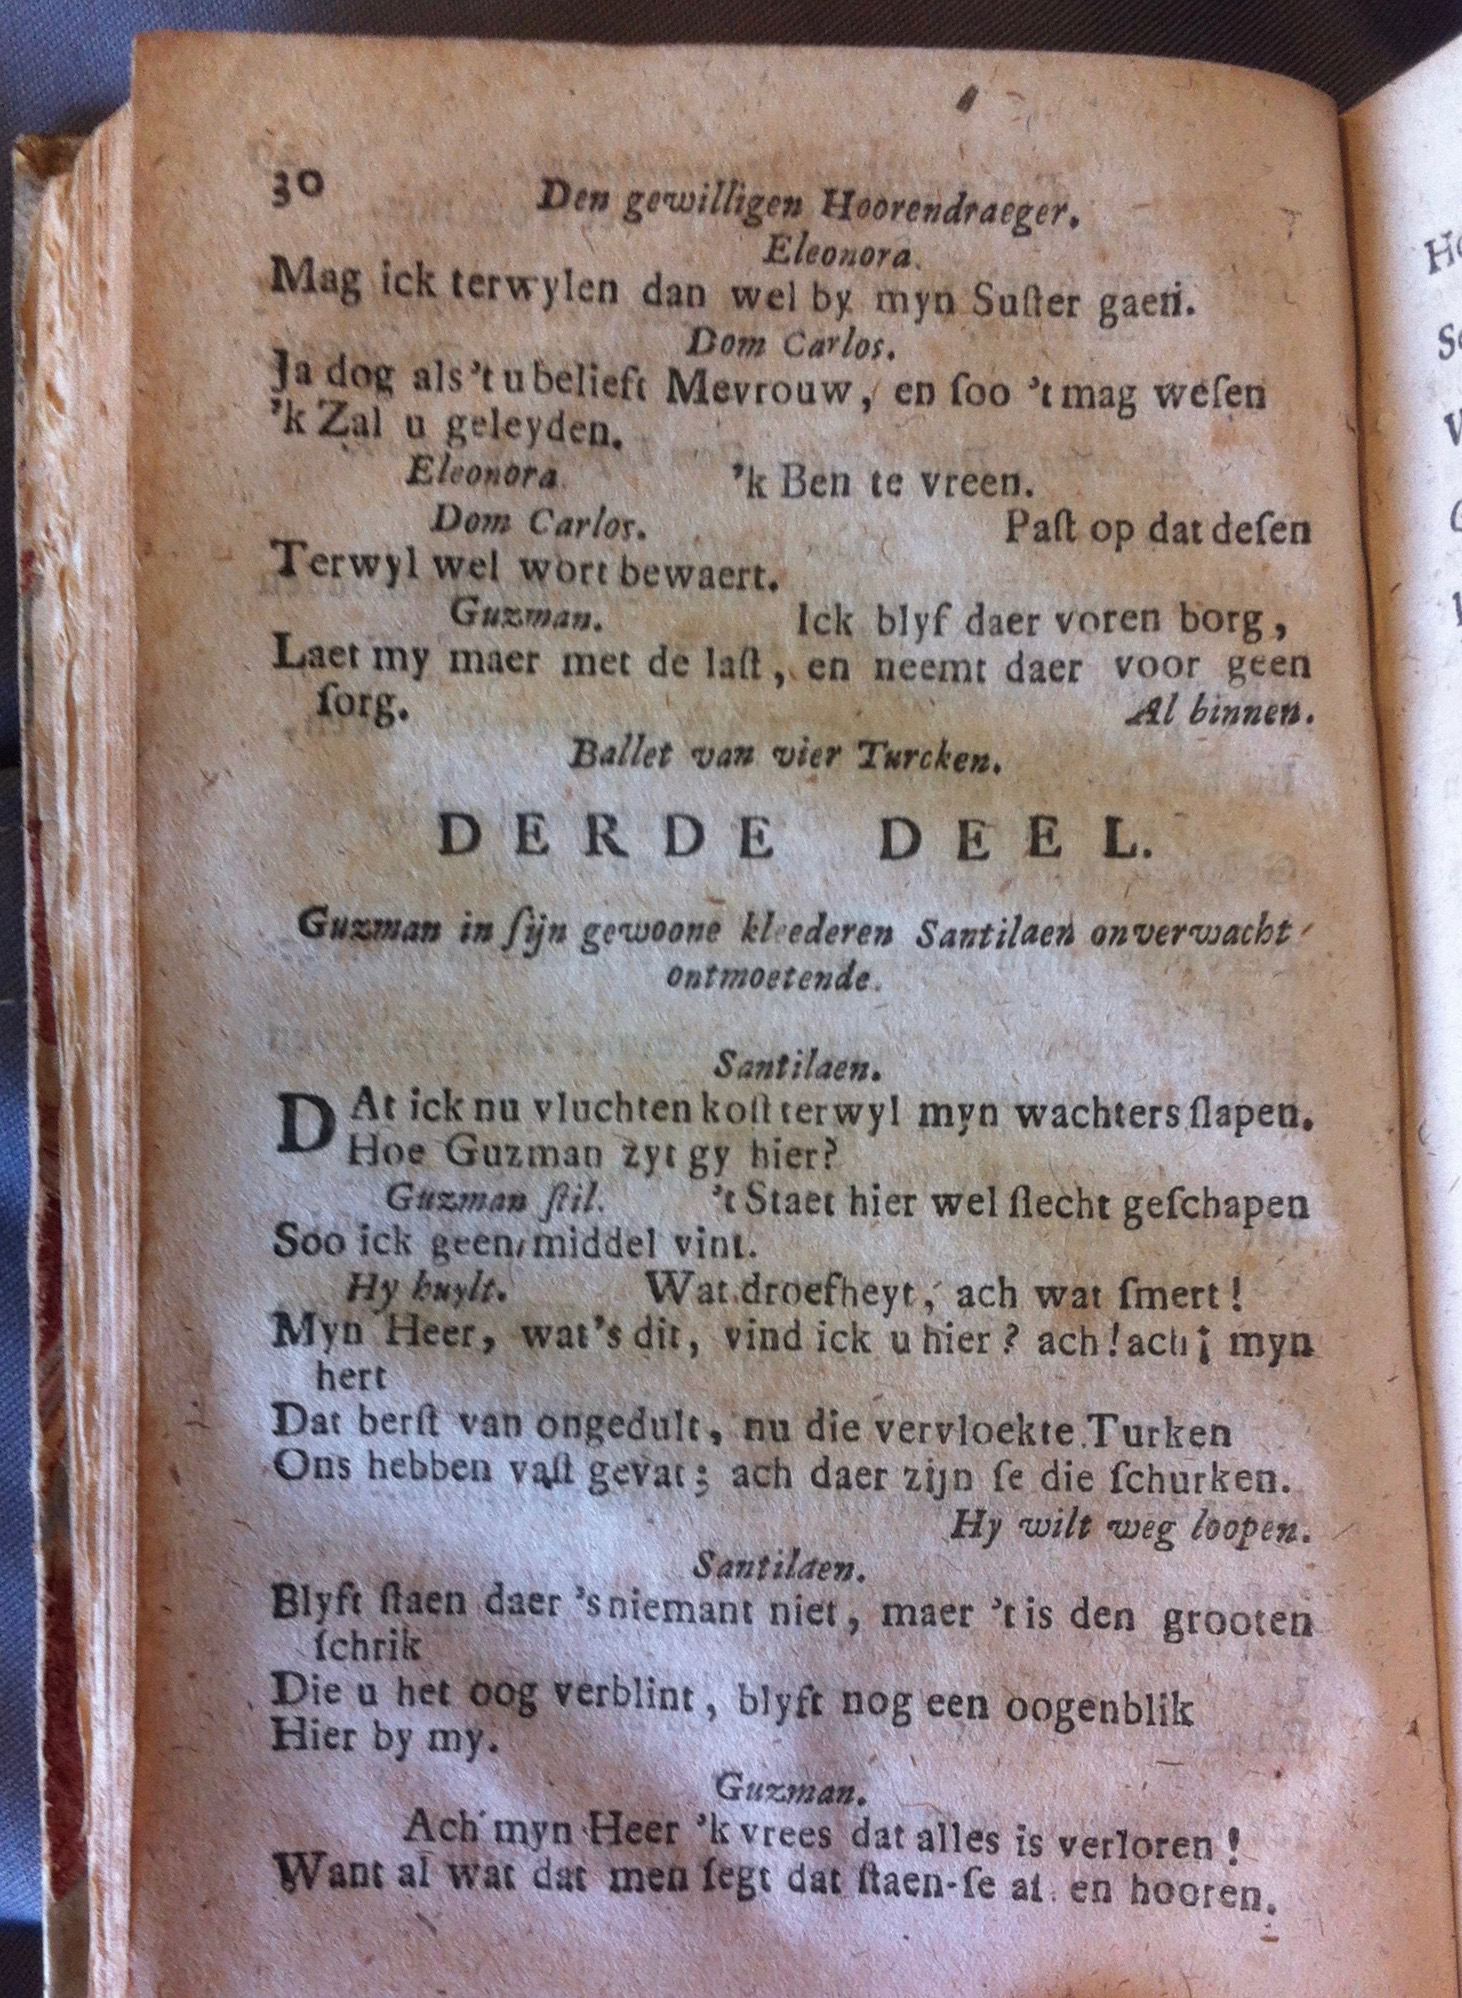 30 Den gewilligen Hoorendraeger.
Eleonora.
Mag ick terwylen dan wel by myn Suſter gaen.
Dom Carlos.
Ja dog als 't u belieft Mevrouw, en ſoo 't mag weſen
'k Zal u geleyden.
Eleonora. 'k Ben te vreen.
Dom Carlos. Paſt op dat deſen
Terwyl wel wort bewaert.
Guzman. Ick blyf daer voren borg,
Laet my maer met de laſt, en neemt daer voor geen
ſorg. Al binnen.
Ballet van vier Turcken.
DERDE DEEL.
Guzman in ſijn gewoone kleederen Santilaen onverwacht
ontmoetende.
Santilaen.
DAt ick nu vluchten koſt terwyl myn wachters ſlapen.
Hoe Guzman zyt gy hier?
Guzman ſtil. 't Staet hier wel ſlecht geſchapen
Soo ick geen middel vint.
Hy huylt. Wat droefheyt, ach wat ſmert!
Myn Heer, wat's dit, vind ick u hier? ach! ach¡ myn
hert
Dat berſt van ongedult, nu die vervloekte Turken
Ons hebben vaſt gevat; ach daer zijn ſe die ſchurken.
Hy wilt weg loopen.
Santilaen.
Blyft ſtaen daer 's niemant niet, maer 't is den grooten
ſchrik
Die u het oog verblint, blyft nog een oogenblik
Hier by my.
Guzman.
Ach myn Heer 'k vrees dat alles is verloren!
Want al wat dat men ſegt dat ſtaen-ſe al en hooren.